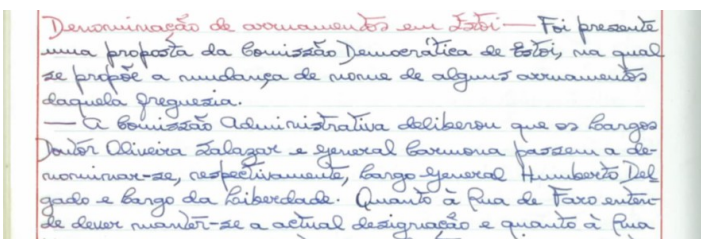 Denominação de arruamentos em Estoi — Foi presente
uma proposta da Comissão Democrática de Estoi, na qual
se propõe a mudança de nome de alguns arruamentos
daquela freguesia.
— A Comissão Administrativa deliberou que os Largos
Doutor Oliveira Salazar e General Carmona passem a de-
nominar-se, respectivamente, Largo General Humberto Del
gado e Largo da Liberdade. Quanto à Rua de Faro enten-
de dever manter-se a actual designação e quanto à Rua